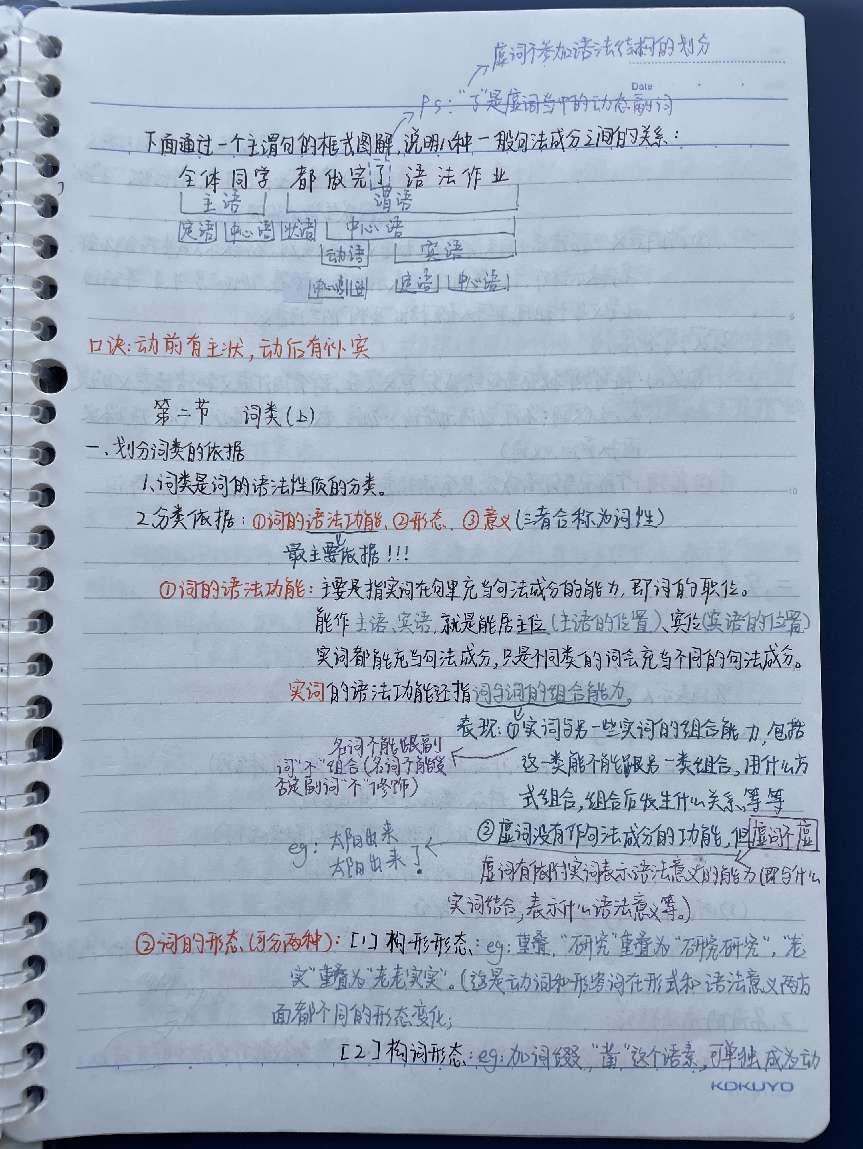 虚词不参加语法结构的划分
Date
Ps:"了"是虚词当中的动态副词
下面通过一个主谓句的框式图解,说明八种一般句法成分之间的关系:
全体同学 都做完了语法作业
主语 谓语
定语 中心语 状语 中心语
动语 宾语
中心语 补 定语 中心语
口诀:动前有主状,动后有补宾
第二节 词类(上)
一、划分词类的依据
1、词类是词的语法性质的分类。
2、分类依据:①词的语法功能、②形态、③意义(三者合称为词性)
最主要依据!!!
①词的语法功能:主要是指实词在句里充当句法成分的能力,即词的职位。
能作主语、宾语,就是能居主位(主语的位置)、宾位(宾语的位置)
实词都能充当句法成分,只是不同类的词会充当不同的句法成分。
实词的语法功能还指词与词的组合能力,
表现:①实词与另一些实词的组合能力,包括
名词不能跟副
词"不"组合(名词不能受
否定副词"不"修饰)
这一类能不能跟另一类组合,用什么方
式组合,组合后发生什么关系、等等
②虚词没有作句法成分的功能,但虚词不虚
eg:太阳出来
太阳出来了
虚词有依附实词表示语法意义的能力(即与什么
实词结合,表示什么语法意义等。)
②词的形态(可分两种):[1]构形形态:eg:重叠,"研究"重叠为"研究研究","老
实"重叠为"老老实实"。(这是动词和形容词在形式和语法意义两方
面都不同的形态变化;
[2]构词形态:eg:加词缀,"凿"这个语素,可单独成为动
KOKUYO